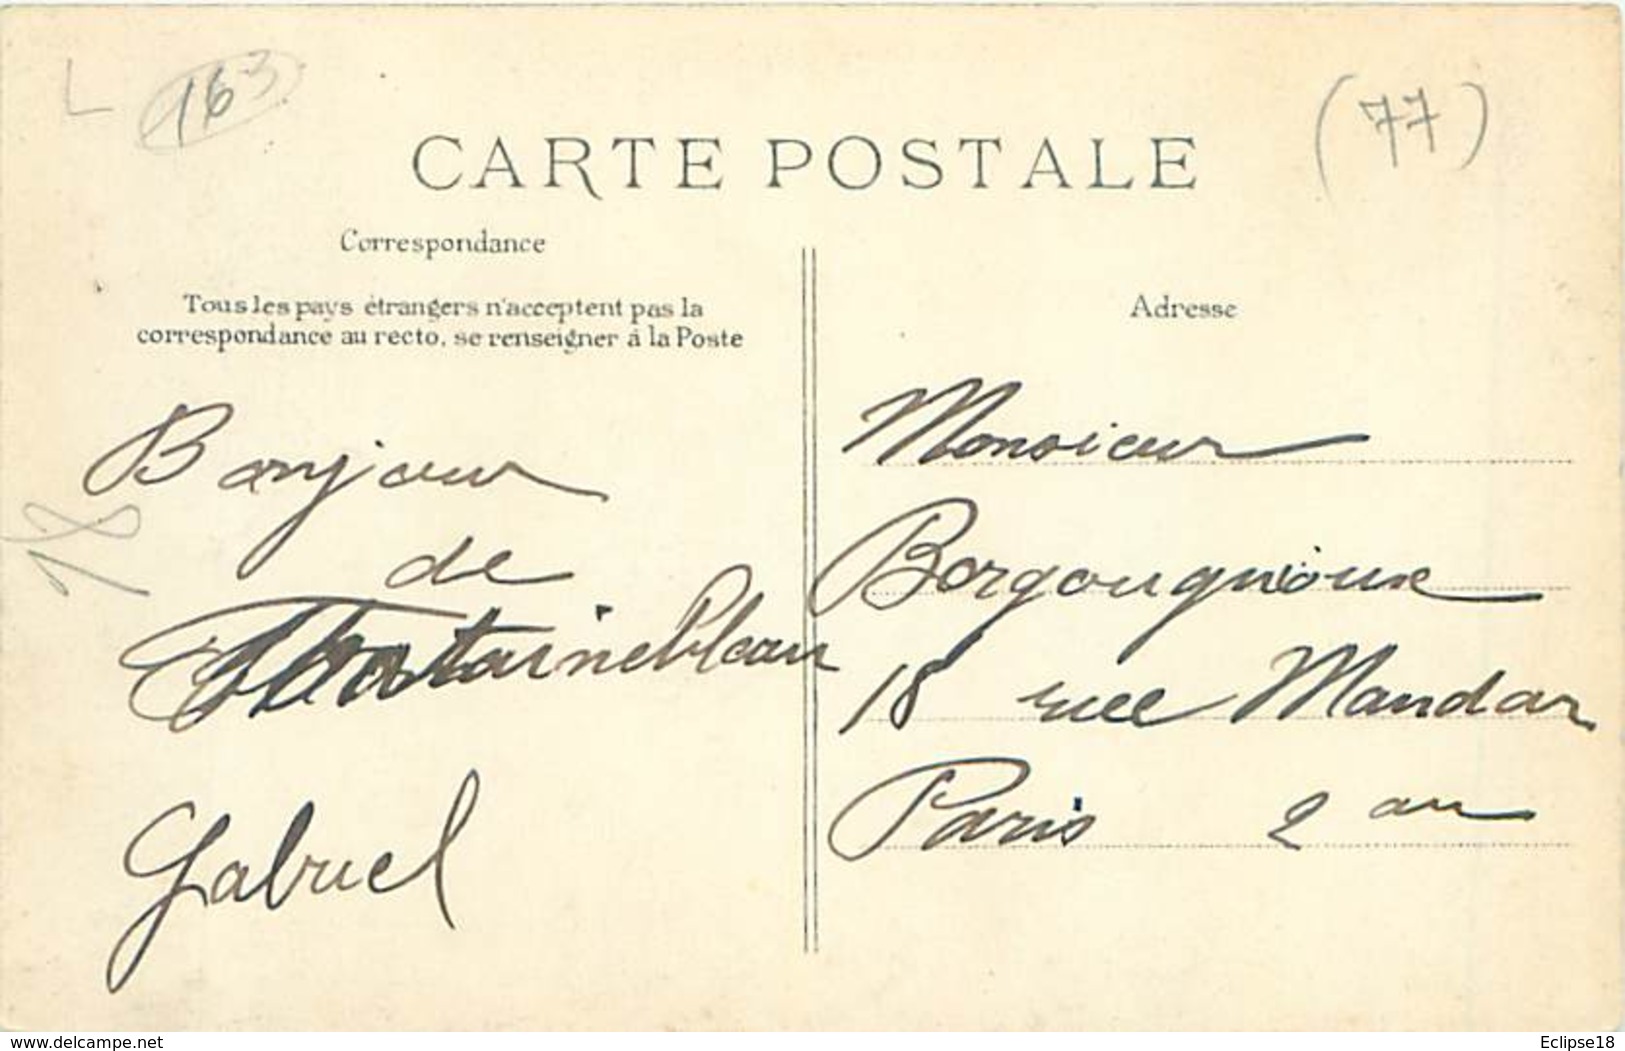 L
163
(77)
CARTE POSTALE
Correspondance
Tous les pays étrangers n'acceptent pas la
correspondance au recto, se renseigner à la Poste
Bonjour
de
Fontainebleau
Gabriel
18
Adresse
Monsieur
Borgougnioux
18 rue Mandar
Paris 2 arr
www.delcampe.net
Eclipse18